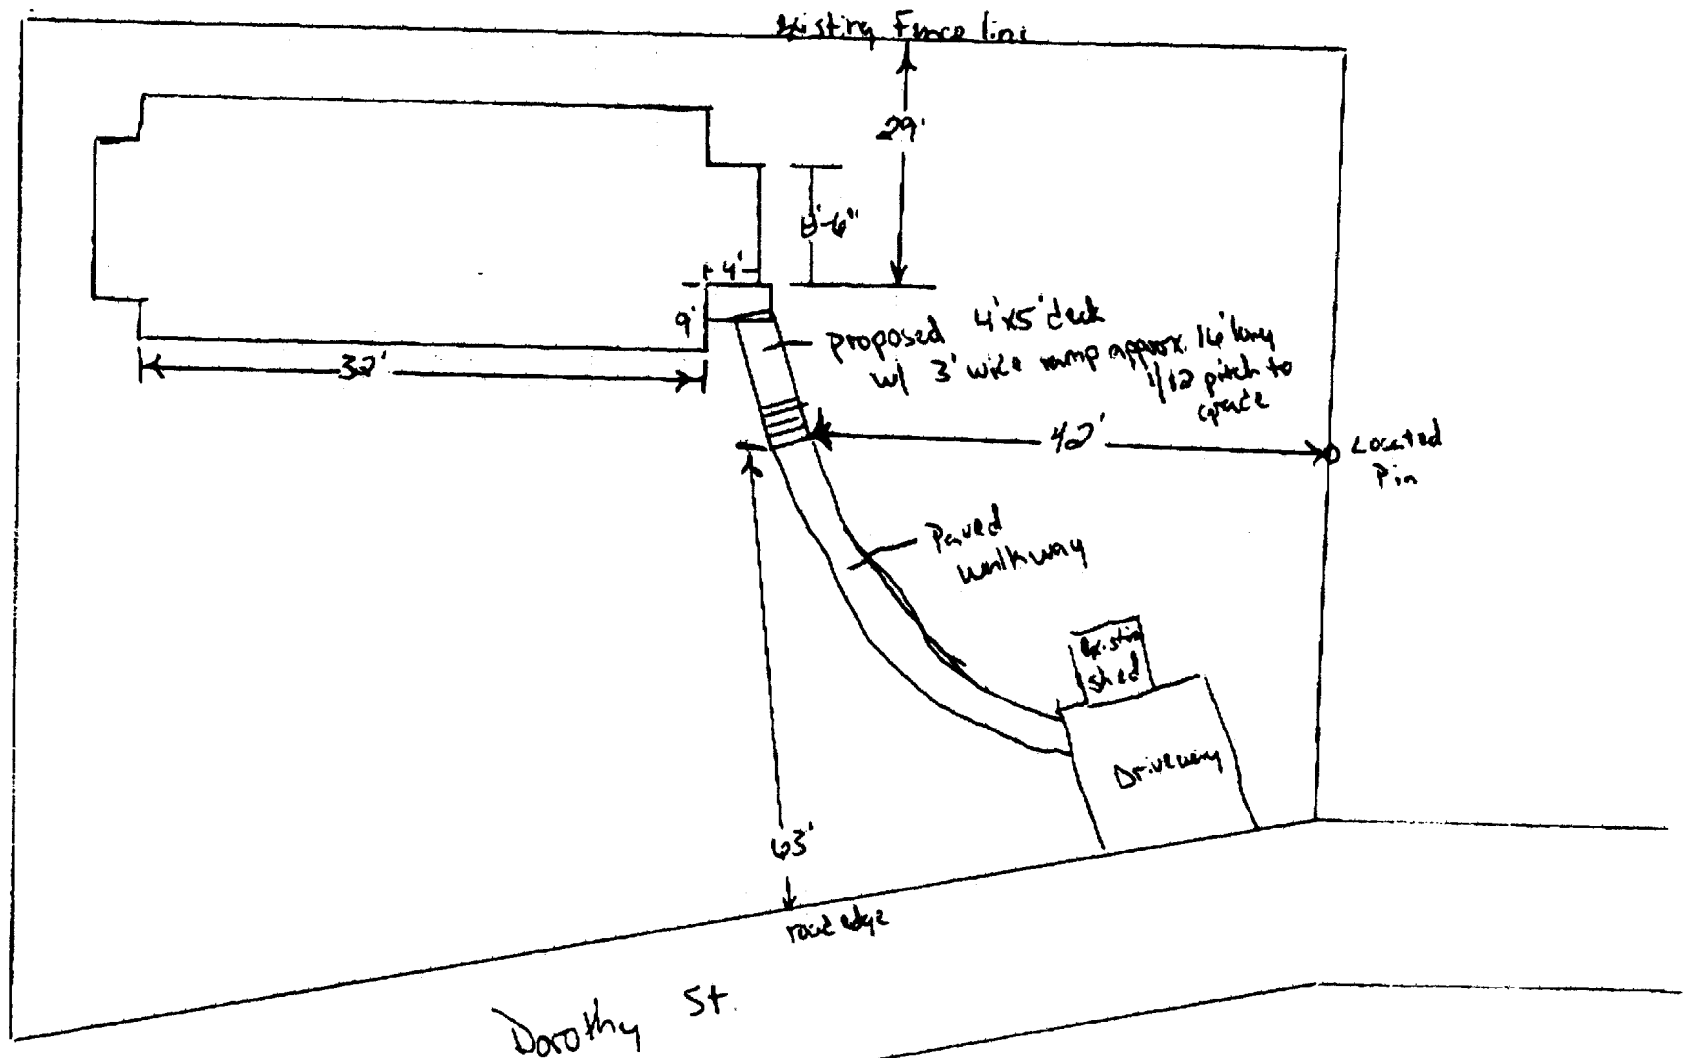 existing Fence line
29'
8'-6"
4'
9'
proposed 4'x5' deck
w/ 3' wide ramp approx. 16' long
1/12 pitch to
grade
32'
42'
Located
Pin
Paved
walkway
existin
shed
Driveway
63'
road edge
Dorothy St.